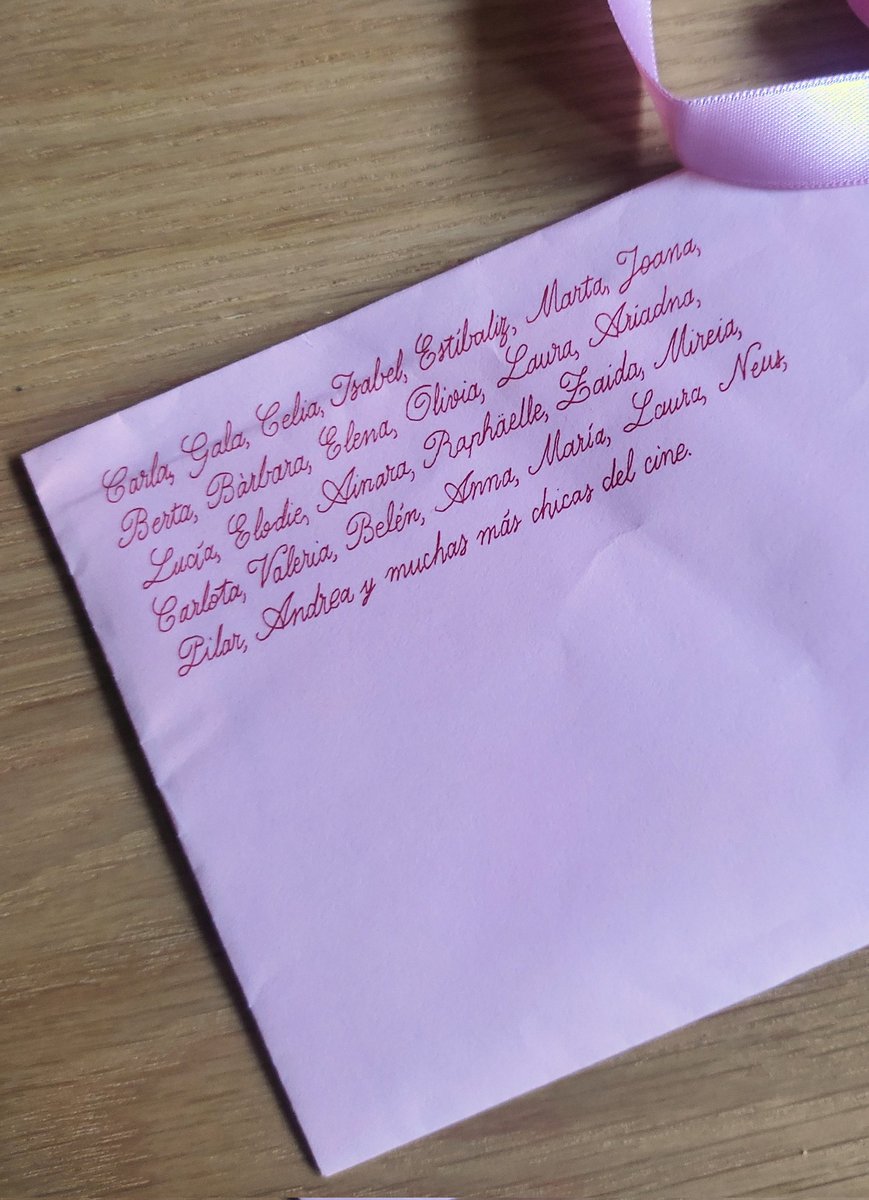 Carla, Gala, Celia, Isabel, Estíbaliz, Marta, Joana,
Berta, Bàrbara, Elena, Olivia, Laura, Ariadna,
Lucía, Elodie, Ainara, Raphäelle, Zaida, Mireia,
Carlota, Valeria, Belén, Anna, María, Laura, Neus,
Pilar, Andrea y muchas más chicas del cine.